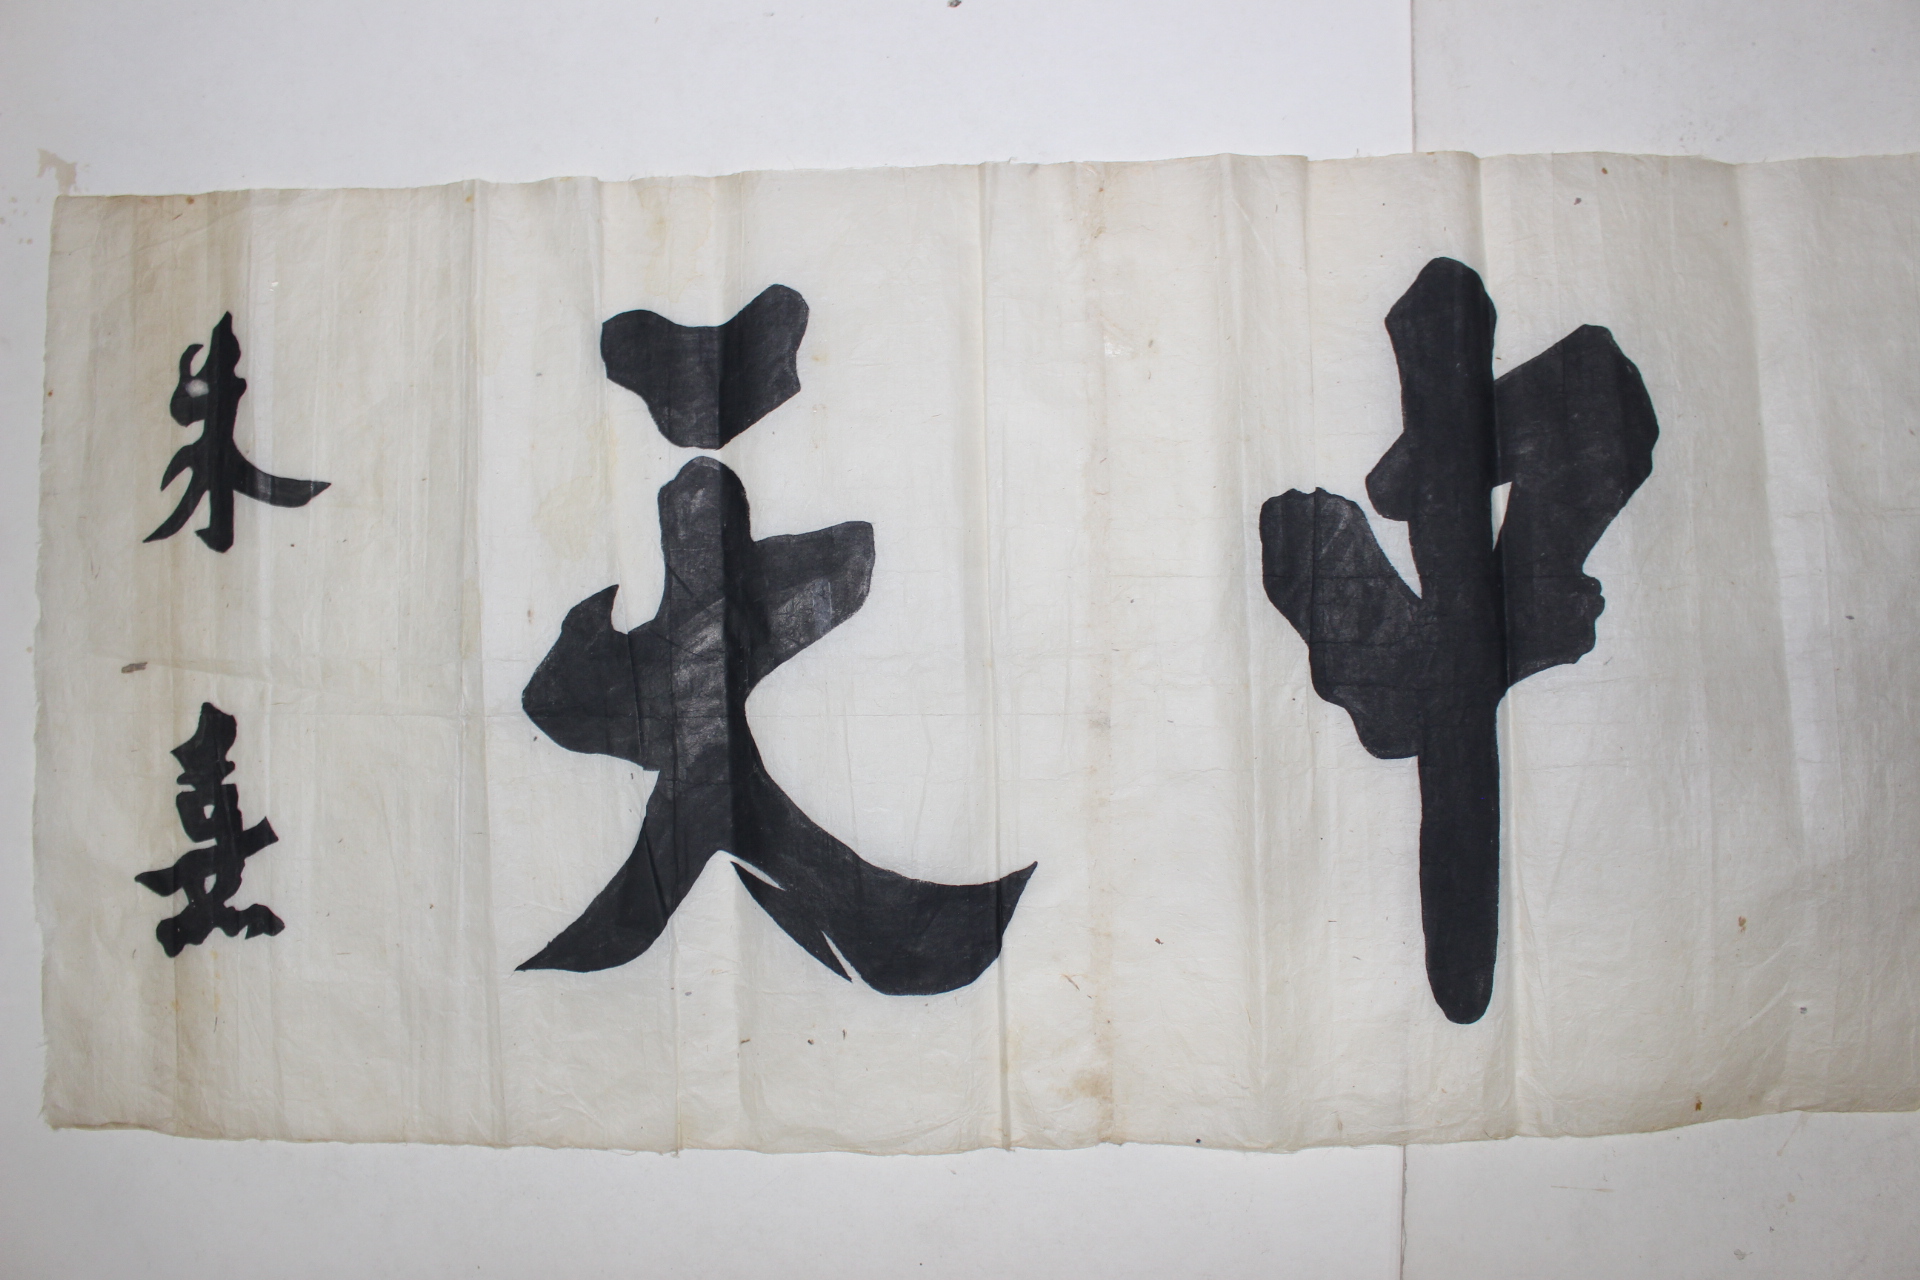 中天
朱熹